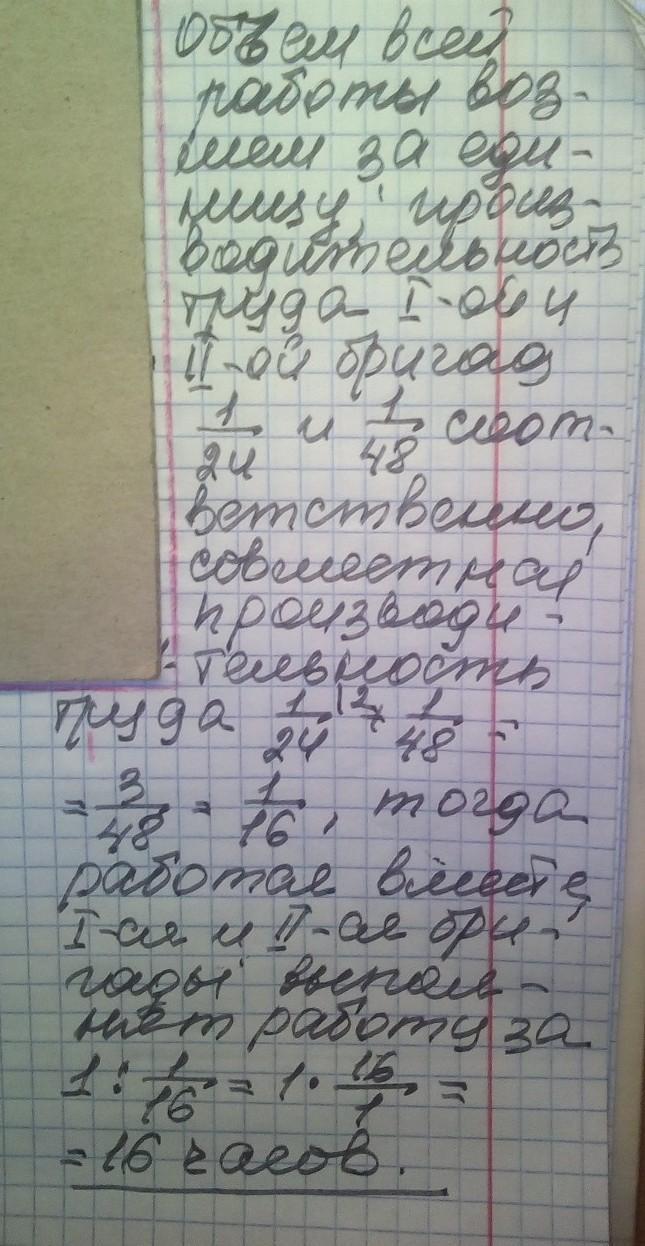 Объем всей
работы воз-
мем за еди-
ницу, произ-
водительность
труда I-ой и
II-ой бригад
1/24 и 1/48 соот-
ветственно,
совместная
производи-
-тельность
труда 1/24 |2 + 1/48 =
= 3/48 = 1/16, тогда
работая вместе,
I-ая и II-ая бри-
гады выпол-
нят работу за
1 : 1/16 = 1 · 16/1 =
= 16 часов.